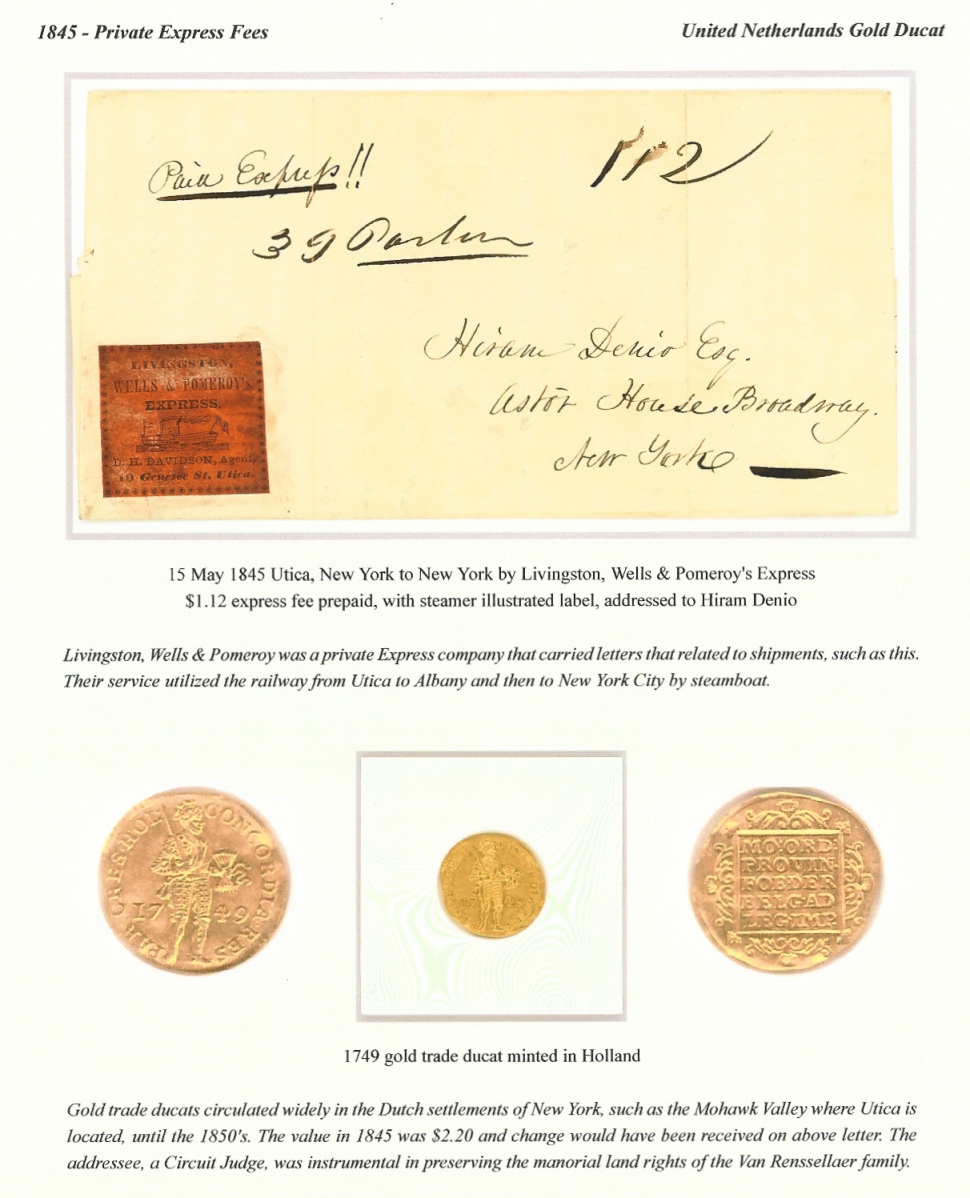 1845 - Private Express Fees
United Netherlands Gold Ducat
Paid Express!!
112
39 
Hiram Denio Esq.
Astor House Broadway.
New York
LIVINGSTON,
WELLS & POMEROY'S
EXPRESS.
D. H. DAVIDSON, Agent,
19 Genesee St. Utica.
15 May 1845 Utica, New York to New York by Livingston, Wells & Pomeroy's Express
$1.12 express fee prepaid, with steamer illustrated label, addressed to Hiram Denio
Livingston, Wells & Pomeroy was a private Express company that carried letters that related to shipments, such as this.
Their service utilized the railway from Utica to Albany and then to New York City by steamboat.
CONCORDIA·RES
PAR·CRES·HOL·
17 49
MO:ORD:
PROUIN.
FOEDER
BELG.AD
LEG.IMP.
1749 gold trade ducat minted in Holland
Gold trade ducats circulated widely in the Dutch settlements of New York, such as the Mohawk Valley where Utica is
located, until the 1850's. The value in 1845 was $2.20 and change would have been received on above letter. The
addressee, a Circuit Judge, was instrumental in preserving the manorial land rights of the Van Renssellaer family.